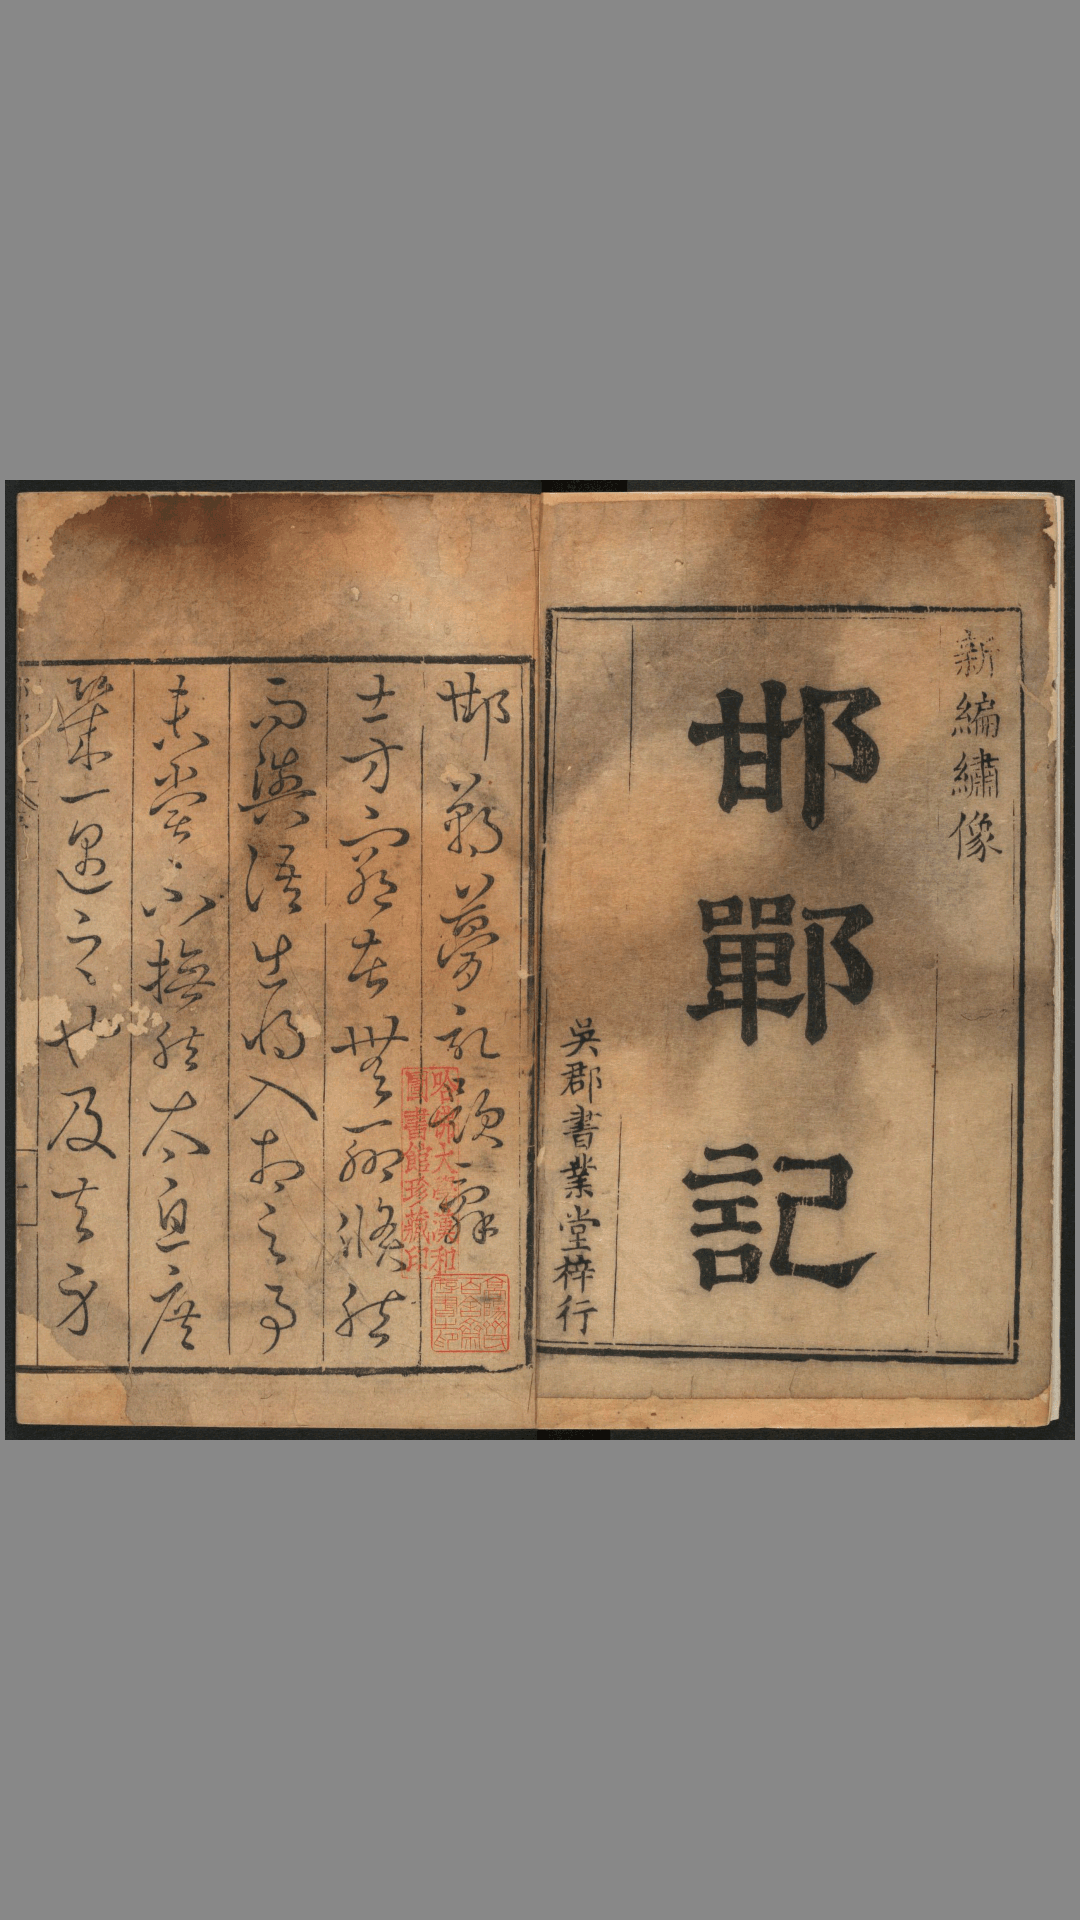 新編繡像
邯鄲記
吳郡書業堂梓行
邯鄲夢記題辭
士方窮苦無聊倏然
而與語出將入相之事
未嘗不撫然太息庶
幾一遇之也及夫身
哈佛大學漢和
圖書館珍藏印